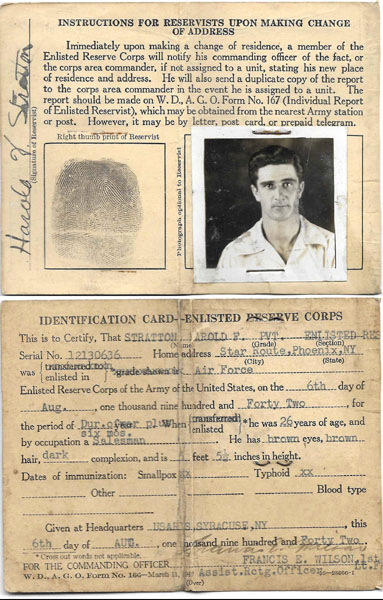 INSTRUCTIONS FOR RESERVISTS UPON MAKING CHANGE
OF ADDRESS
Immediately upon making a change of residence, a member of the
Enlisted Reserve Corps will notify his commanding officer of the fact, or
the corps area commander, if not assigned to a unit, stating his new place
of residence and address. He will also send a duplicate copy of the report
to the corps area commander in the event he is assigned to a unit. The
report should be made on W. D., A. G. O. Form No. 167 (Individual Report
of Enlisted Reservist), which may be obtained from the nearest Army station
or post. However, it may be by letter, post card, or prepaid telegram.
Harold F. Stratton
(Signature of Reservist)
Right thumb print of Reservist
Photograph optional to Reservist
IDENTIFICATION CARD—ENLISTED RESERVE CORPS
This is to Certify, That STRATTON HAROLD F. PVT. ENLISTED RES
(Name) (Grade) (Section)
Serial No. 12130636 Home address Star Route, Phoenix, NY
(City) (State)
was transferred to
enlisted in *grade shown in Air Force
Enlisted Reserve Corps of the Army of the United States, on the 6th day of
Aug., one thousand nine hundred and Forty Two, for
the period of Dur. of war plus when transferred
enlisted *he was 26 years of age, and
six mos.
by occupation a Salesman He has brown eyes, brown
hair, dark complexion, and is feet 5½ inches in height.
Dates of immunization: Smallpox xx Typhoid xx
Other Blood type
Given at Headquarters USARTS, SYRACUSE, NY, this
6th day of AUG. one thousand nine hundred and Forty Two.
* Cross out words not applicable.
FOR THE COMMANDING OFFICER FRANCIS E. WILSON, 1st
Lt.
W. D., A. G. O. Form No. 166—March Assist. Rctg. Officer
(Over)